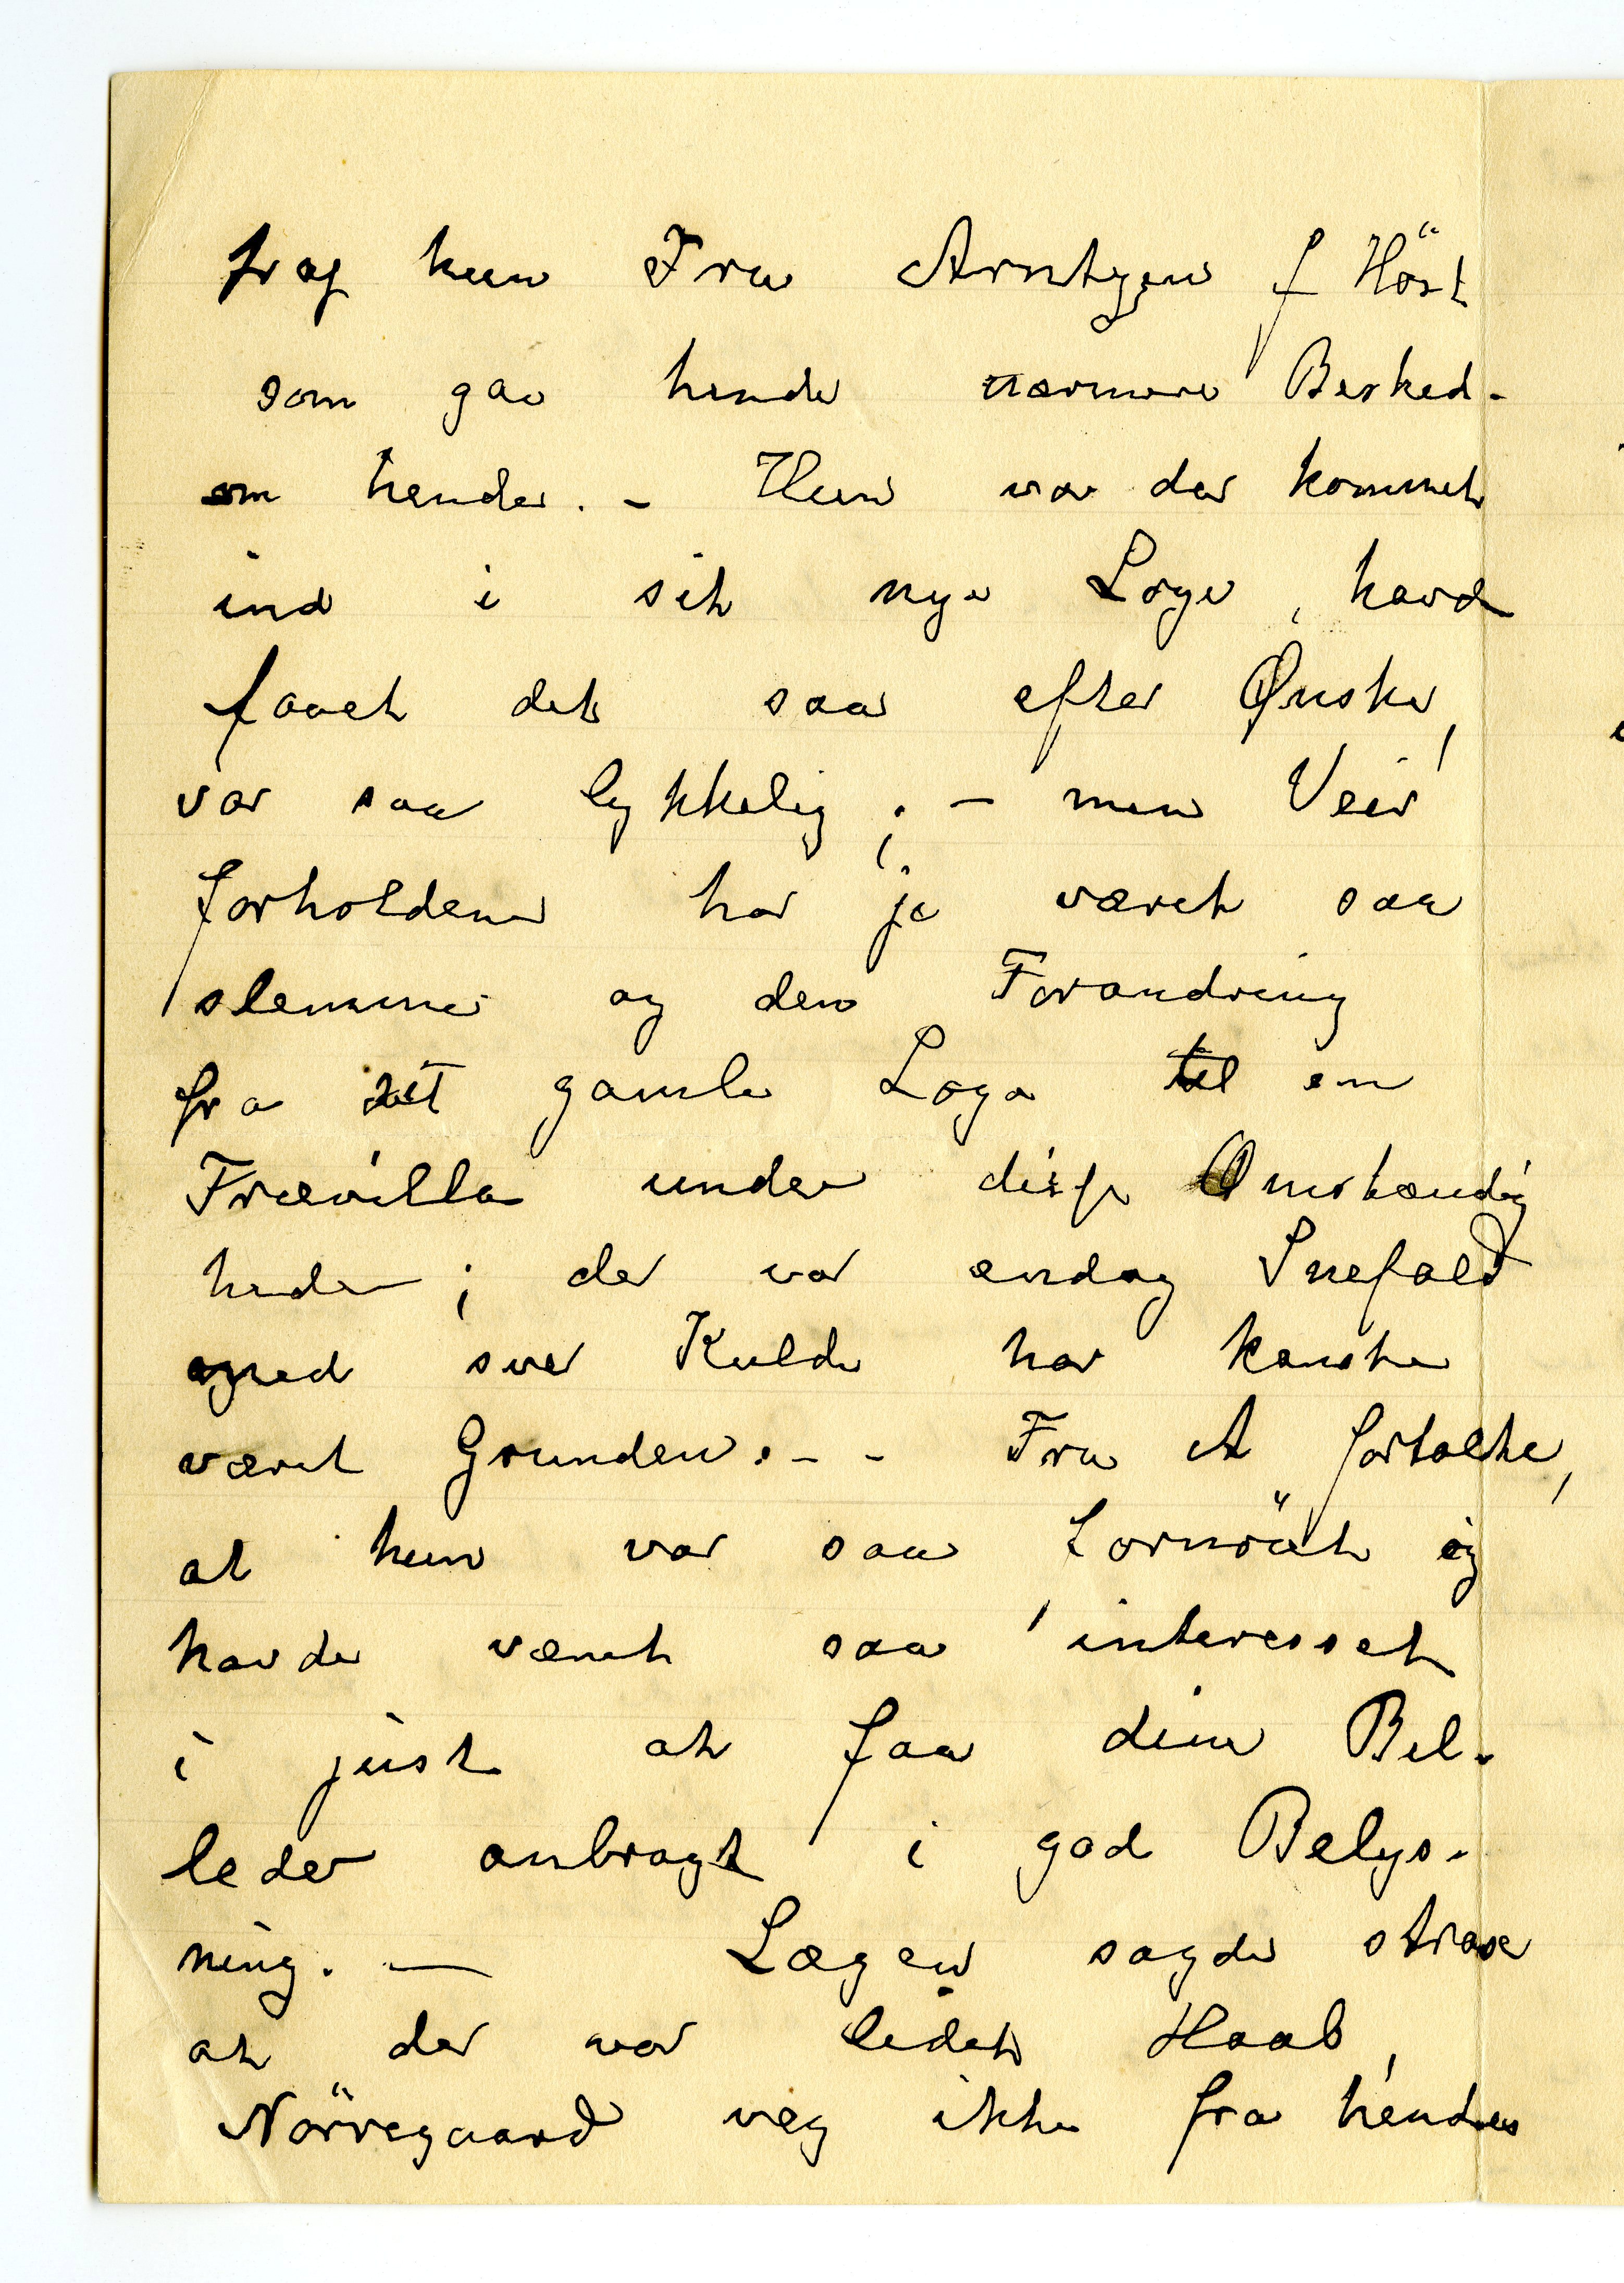 traf hun Fru Arntzen f Höst
som gav hende nærmere Besked.
om hende. - Hun var der kommet
ind i sit nye Loge, havd
faaet det saa efter Ønske,
var saa lykkelig; - men Veir
forholdene har jo været saa
slemme og den Forandring
fra sit gamle Loge til en
Trævilla under disse Omstændig
heder; der var endog Snefald
med svær Kulde har kanske
været Grunden. - - Fru A fortalte,
at hun var saa fornöiet og
havde været saa interesset
i just at faa dine Bil-
leder anbragt i god Belys-
ning. — Lægen sagde strax
at der var lidet Haab,
Nörregaard veg ikke fra hendes